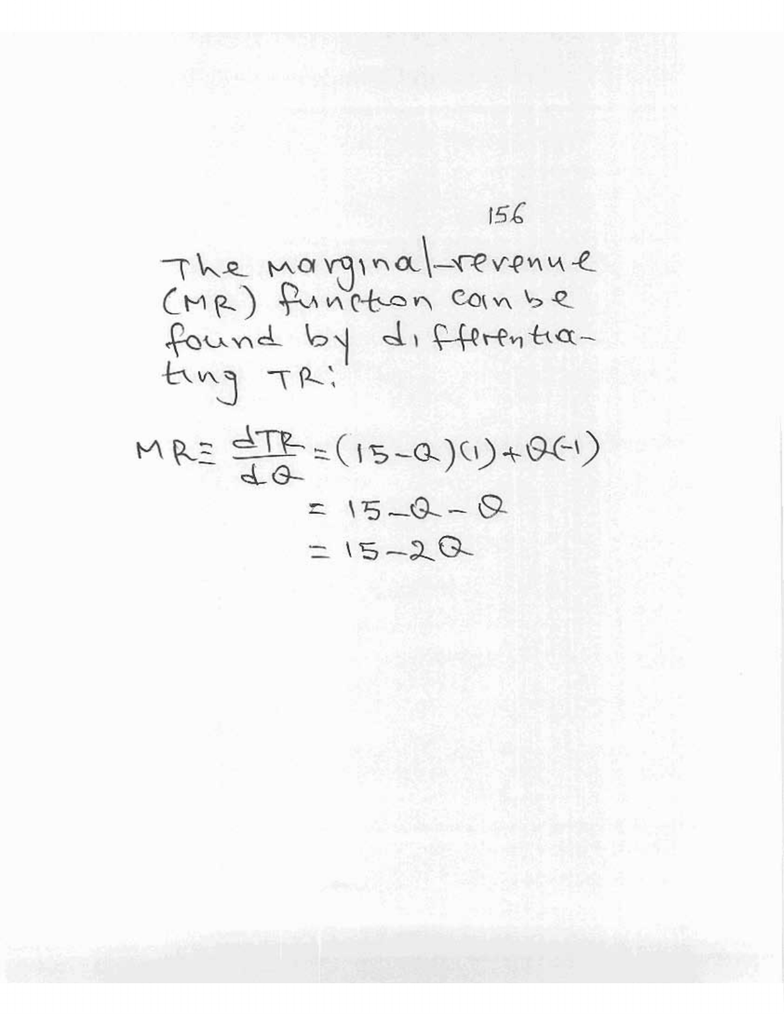 156
The marginal-revenue
(MR) function can be
found by differentia-
ting TR:
MR≡ dTR/dQ = (15-Q)(1)+Q(-1)
= 15-Q-Q
= 15-2Q